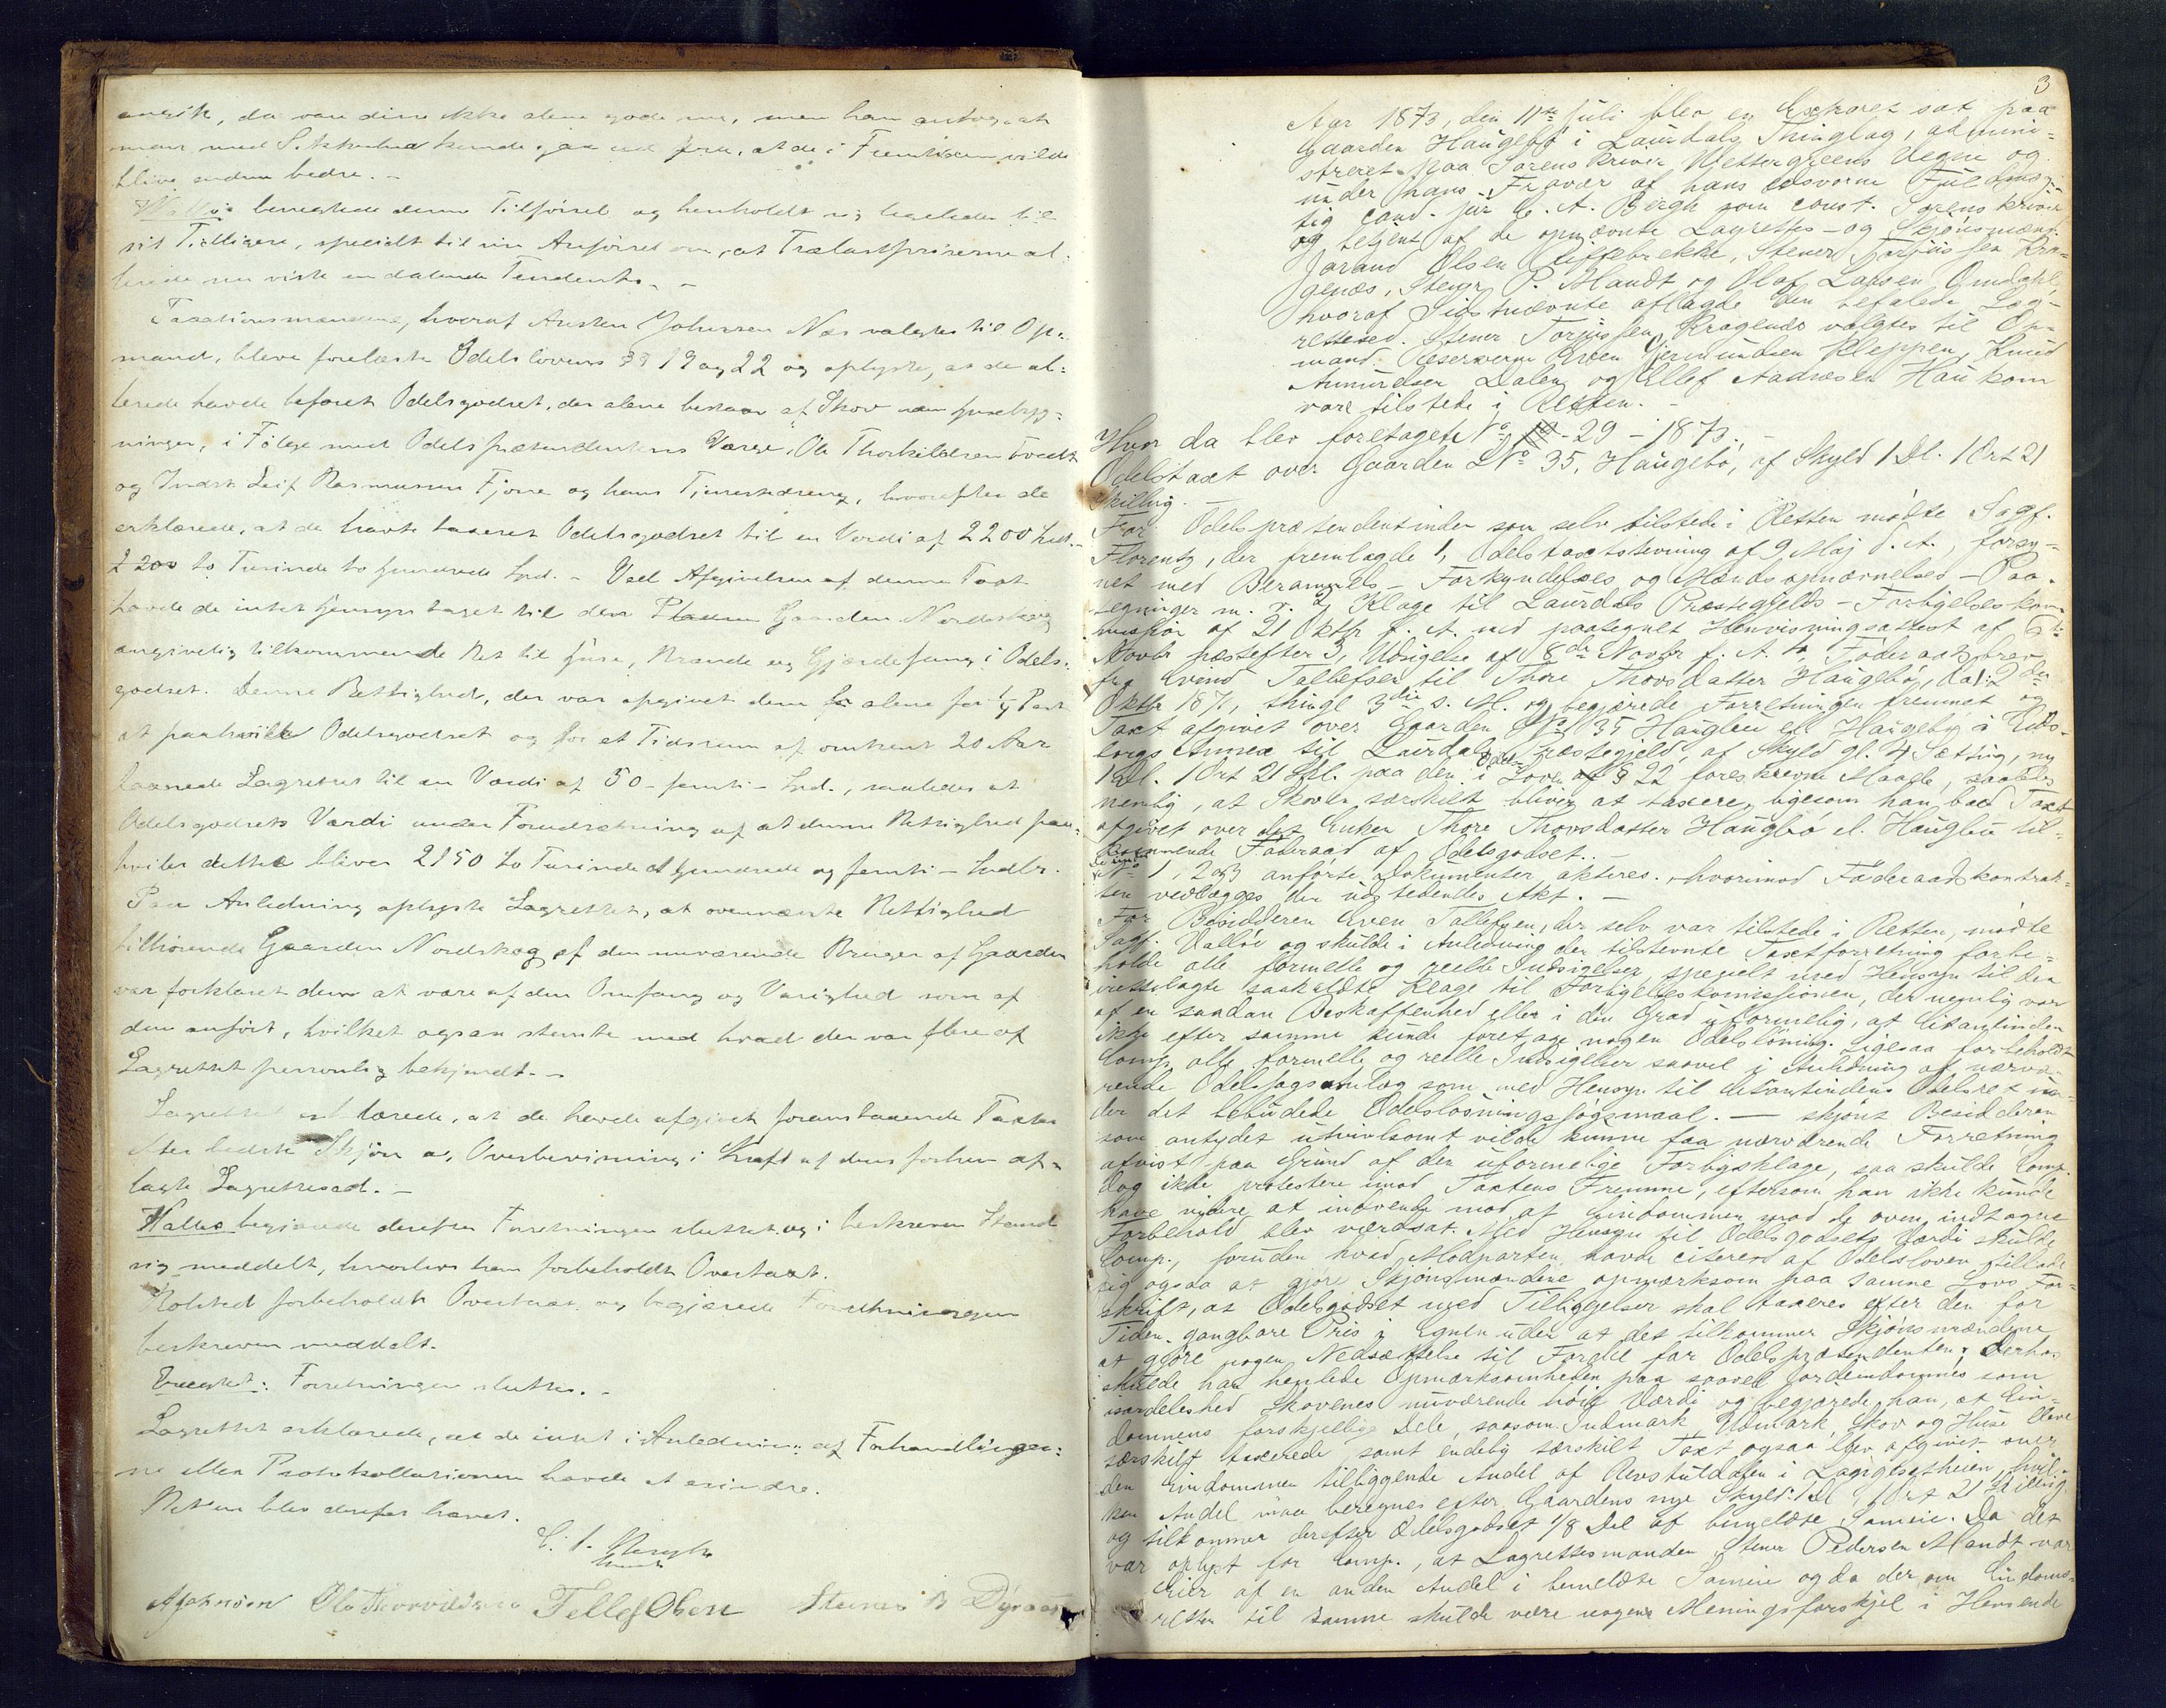 da vare disse ikke alene gode nu, men han antog, at
man med Sikkerhed kunde gaa ud fra, at de i Fremtiden vilde
blive endnu bedre. -
Walløe benegtede denne Tilførsel og henholdt sig ligeledes til
sit Tidligere, specielt til sin Anførsel om, at Trælastpriserne al-
lerede nu viste en dalende Tendents. -
Taxationsmændene, hvoraf Austen Johnsen Næs valgtes til Op-
mand, bleve forelæste Odelslovens §§ 19 og 22 og oplyste, at de al-
lerede havde befaret Odelsgodset, der alene bestaar af Skov uden Husebyg-
ninger, i Følge med Odelsprætendentens Værge, Ole Thorkildsen Tveit
og Indst. Leif Rasmussen Fjone og hans hvorefter de
erklærede, at de havde taxeret Odelsgodset til en Verdi af 2200 Spd. -
2200 to Tusinde to Hundrede Spd. - Ved Afgivelsen af denne Taxt
havde de intet Hensyn taget til den Gaarden Nordskog
angivelig tilkommende Ret til Huse, Brænde og Gjærdefang i Odels-
godset. Denne Rettighed, der var opgivet dem alene for Part
at paahvile Odelsgodset og for et Tidsrum af omtrent 20 Aar
taxerede Lagrettet til en Værdi af 50 - femti - Spd., saaledes at
Odelsgodsets Værdi under Forudsætning af at denne Rettighed paa-
hviler dette bliver 2150 to Tusinde et Hundrede og femti - Spdlr.
Paa Anledning oplyste Lagrettet, at ovennævnte Rettighed
tilhørende Gaarden Nordskog af den nuværende Bruger af Gaarden
var forklaret dem at være af den Omfang og Varighed som af
dem anført, hvilket ogsaa stemte med hvad der var flere af
Lagrettet personlig bekjendt. -
Lagrettet erklærede, at de havde afgivet foranstaaende Taxter
efter bedste Skjøn og Overbevisning i Kraft af den forhen af-
lagte Lagrettesed. -
Walløe begjærede derefter Forretningen sluttet og i beskreven Stand
sig meddelt, hvorhos han forbeholdt Overtaxt.
Rolsted forbeholdt Overtaxt og begjærede Forretningen
beskreven meddelt.
Eragtet: Forretningen sluttes. -
Lagrettet erklærede, at de intet i Anledning af Forhandlinger-
ne eller Protokollationen havde at erindre.
Retten blev derefter hævet.
C. A. Bergh
const.
A Johnsen Ole Thorkildsen Tellef Olsen Steiner
3
Aar 1873, den 11te Juli blev en Extraret sat paa
Gaarden Haugebø i Laurdals Thinglag, admini-
streret paa Sorenskriver Wettergreens Vegne og
under hans Fravær af hans edsvorne Fuldmæg-
tig cand. jur. C. A. Bergh som const. Sorenskriver
og betjent af de opnævnte Lagrettes- og Skjønsmænd
Jørand Olsen Stener Torjussen Kra-
genæs, Stener P. Mandt og Olaf Larsen Omdahl,
hvoraf Sidstnævnte aflagde den befalede Lag-
rettesed. Stener Torjussen Kragenæs valgtes til Op-
mand. Reserverne Even Gjermundsen Kleppen, Knud
Anundsen Dalen og Ellef Aadnesen Haukom
vare tilstede i Retten. -
Hvor da blev foretaget No 29 - 1873. -
Odelstaxt over Gaarden LNo 35, Haugebø, af Skyld 1 Dl. 1 Ort 21
Skilling. -
For Odelsprætendentinden som selv tilstede i Retten mødte Sagf.
Florentz, der fremlagde 1, Odelstaxtstevning af 9 Maj d. A., forsy-
net med Berammelses- Forkyndelses og Mænds opnævnelses- Paa-
tegninger m. v. 2, Klage til Laurdals Præstegjelds- Forligelseskom-
mission af 21 Oktbr f. A. med paategnet Henvisningsattest af
Novbr næstefter 3, Udsigelse af 8de Novbr f. A. 4, Føderaadsbrev
fra Evend Tallefsen til Thore Thovsdatter Haugebø, dat. 2den
Oktbr 1871, thingl. 3die s. M. og begjærede Forretningen fremmet og
Taxt afgivet over Gaarden LNo 35 Hauglie el. Haugebø i Eids-
borgs Annex til Laurdals Præstegjeld, af Skyld gl. 4 Sætting, ny
1 Dl. 1 Ort 21 Skl. paa den i Odelsloven § 22 foreskrevne Maade, saaledes
nemlig, at Skoven særskilt bliver at taxere, ligesom han bad Taxt
afgivet over det Enken Thore Thovsdatter Haugbø el. Hauglie til-
kommende Føderaad af Odelsgodset. -
De under No 1, 2 og 3 anførte Dokumenter akteres, hvorimod Føderaadskontrak-
ten vedlægges den udstedendes Akt. -
For Besidderen Even Tallefsen, der selv var tilstede i Retten, mødte
Sagf. Walløe og skulde i Anledning den tilstevnte Taxtforretning forbe-
holde alle formelle og reelle Indsigelser, specielt med Hensyn til den
irettelagte saakaldte Klage til Forligelseskomissionen, der nemlig var
af en saadan Beskaffenhed eller i den Grad uformelig, at Citantinden
ikke efter samme kunde foretage nogen Odelsløsning. Ligesaa forbeholdt
Comp. alle formelle og reelle Indsigelser saavel i Anledning af nærvæ-
rende Odelssagsanlæg som med Hensyn til Citantindens Odelsret un-
der det bebudede Odelsløsningssøgsmaal. — skjønt Besidderen
som antydet utvivlsomt vilde kunne faa nærværende Forretning
afvist paa Grund af den uformelige Forligsklage, saa skulde Comp.
dog ikke protestere imod Taxtens Fremme, eftersom han ikke kunde
have videre at indvende mod at Eiendommen mod de oven indtagne
Forbehold blev værdsat. Med Hensyn til Odelsgodsets Værdi skulde
Comp., foruden hvad Modparten havde citeret af Odelsloven, tillade
sig ogsaa at gjøre Skjønsmændene opmærksom paa samme Lovs For-
skrift, at Odelsgodset med Tilliggelser skal taxeres efter den for
Tiden gangbare Pris i Egnen uden at det tilkommer Skjønsmændene
at gjøre nogen Nedsættelse til Fordel for Odelsprætendenten; derhos
skulde han henlede Opmærksomheden paa saavel Jordeiendommes som
isærdeleshed Skovenes nuværende høie Værdi og begjærede han, at Eien-
dommens forskjellige Dele, saasom Indmark, Udmark, Skov og Huse bleve
særskilt taxerede samt endelig særskilt Taxt ogsaa blev afgivet over
den Eiendommen tilliggende Andel af i hvil-
ken Andel maa beregnes efter Gaardens nye Skyld: 1 Dl 1 Ort 21 Skilling
og tilkommer derefter Odelsgodset 1/8 Del af bemeldte Sameie. Da det
var oplyst for Comp., at Lagrettesmanden Stener Pedersen Mandt var
Eier af en anden Andel i bemeldte Sameie og da der om Eiendoms-
retten til samme skulde være nogen Meningsforskjel i Henseende